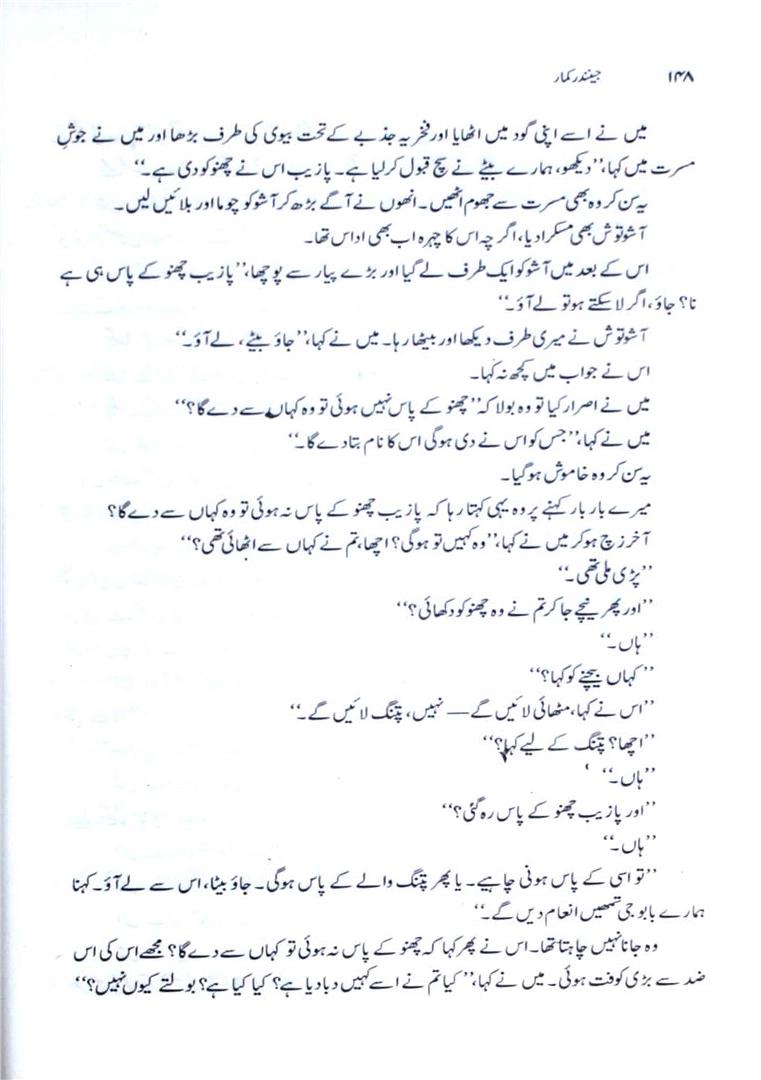 ۱۴۸ جینندر کمار
میں نے اسے اپنی گود میں اٹھایا اور فخریہ جذبے کے تحت بیوی کی طرف بڑھا اور میں نے جوشِ
مسرت میں کہا، ”دیکھو، ہمارے بیٹے نے سچ قبول کر لیا ہے۔ پازیب اس نے چھنو کو دی ہے۔“
یہ سن کر وہ بھی مسرت سے جھوم اٹھیں۔ انھوں نے آگے بڑھ کر آشو کو چوما اور بلائیں لیں۔
آشوتوش بھی مسکرا دیا، اگرچہ اس کا چہرہ اب بھی اداس تھا۔
اس کے بعد میں آشو کو ایک طرف لے گیا اور بڑے پیار سے پوچھا، ”پازیب چھنو کے پاس ہی ہے
نا؟ جاؤ، اگر لا سکتے ہو تو لے آؤ۔“
آشوتوش نے میری طرف دیکھا اور بیٹھا رہا۔ میں نے کہا، ”جاؤ بیٹے، لے آؤ۔“
اس نے جواب میں کچھ نہ کہا۔
میں نے اصرار کیا تو وہ بولا کہ ”چھنو کے پاس نہیں ہوئی تو وہ کہاں سے دے گا؟“
میں نے کہا، ”جس کو اس نے دی ہوگی اس کا نام بتا دے گا۔“
یہ سن کر وہ خاموش ہو گیا۔
میرے بار بار کہنے پر وہ یہی کہتا رہا کہ پازیب چھنو کے پاس نہ ہوئی تو وہ کہاں سے دے گا؟
آخر زچ ہو کر میں نے کہا، ”وہ کہیں تو ہوگی؟ اچھا، تم نے کہاں سے اٹھائی تھی؟“
”پڑی ملی تھی۔“
”اور پھر نیچے جا کر تم نے وہ چھنو کو دکھائی؟“
”ہاں۔“
”کہاں بیچنے کو کہا؟“
”اس نے کہا، مٹھائی لائیں گے — نہیں، پتنگ لائیں گے۔“
”اچھا؟ پتنگ کے لیے کہا؟“
”ہاں۔“
”اور پازیب چھنو کے پاس رہ گئی؟“
”ہاں۔“
”تو اسی کے پاس ہونی چاہیے۔ یا پھر پتنگ والے کے پاس ہوگی۔ جاؤ بیٹا، اس سے لے آؤ۔ کہنا
ہمارے بابو جی تمھیں انعام دیں گے۔“
وہ جانا نہیں چاہتا تھا۔ اس نے پھر کہا کہ چھنو کے پاس نہ ہوئی تو کہاں سے دے گا؟ مجھے اس کی اس
ضد سے بڑی کوفت ہوئی۔ میں نے کہا، ”کیا تم نے اسے کہیں دبا دیا ہے؟ کیا کیا ہے؟ بولتے کیوں نہیں؟“